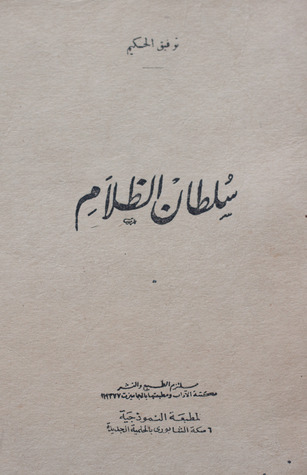 توفيق الحكيم
سُلطان الظلَامِ
ملتزم الطبع والنشر
مكتبة الآداب ومطبعتها بالجماميزت ٤٢٣٧٧
المطبعة النموذجية
٦ سكة الشابوري بالحلمية الجديدة